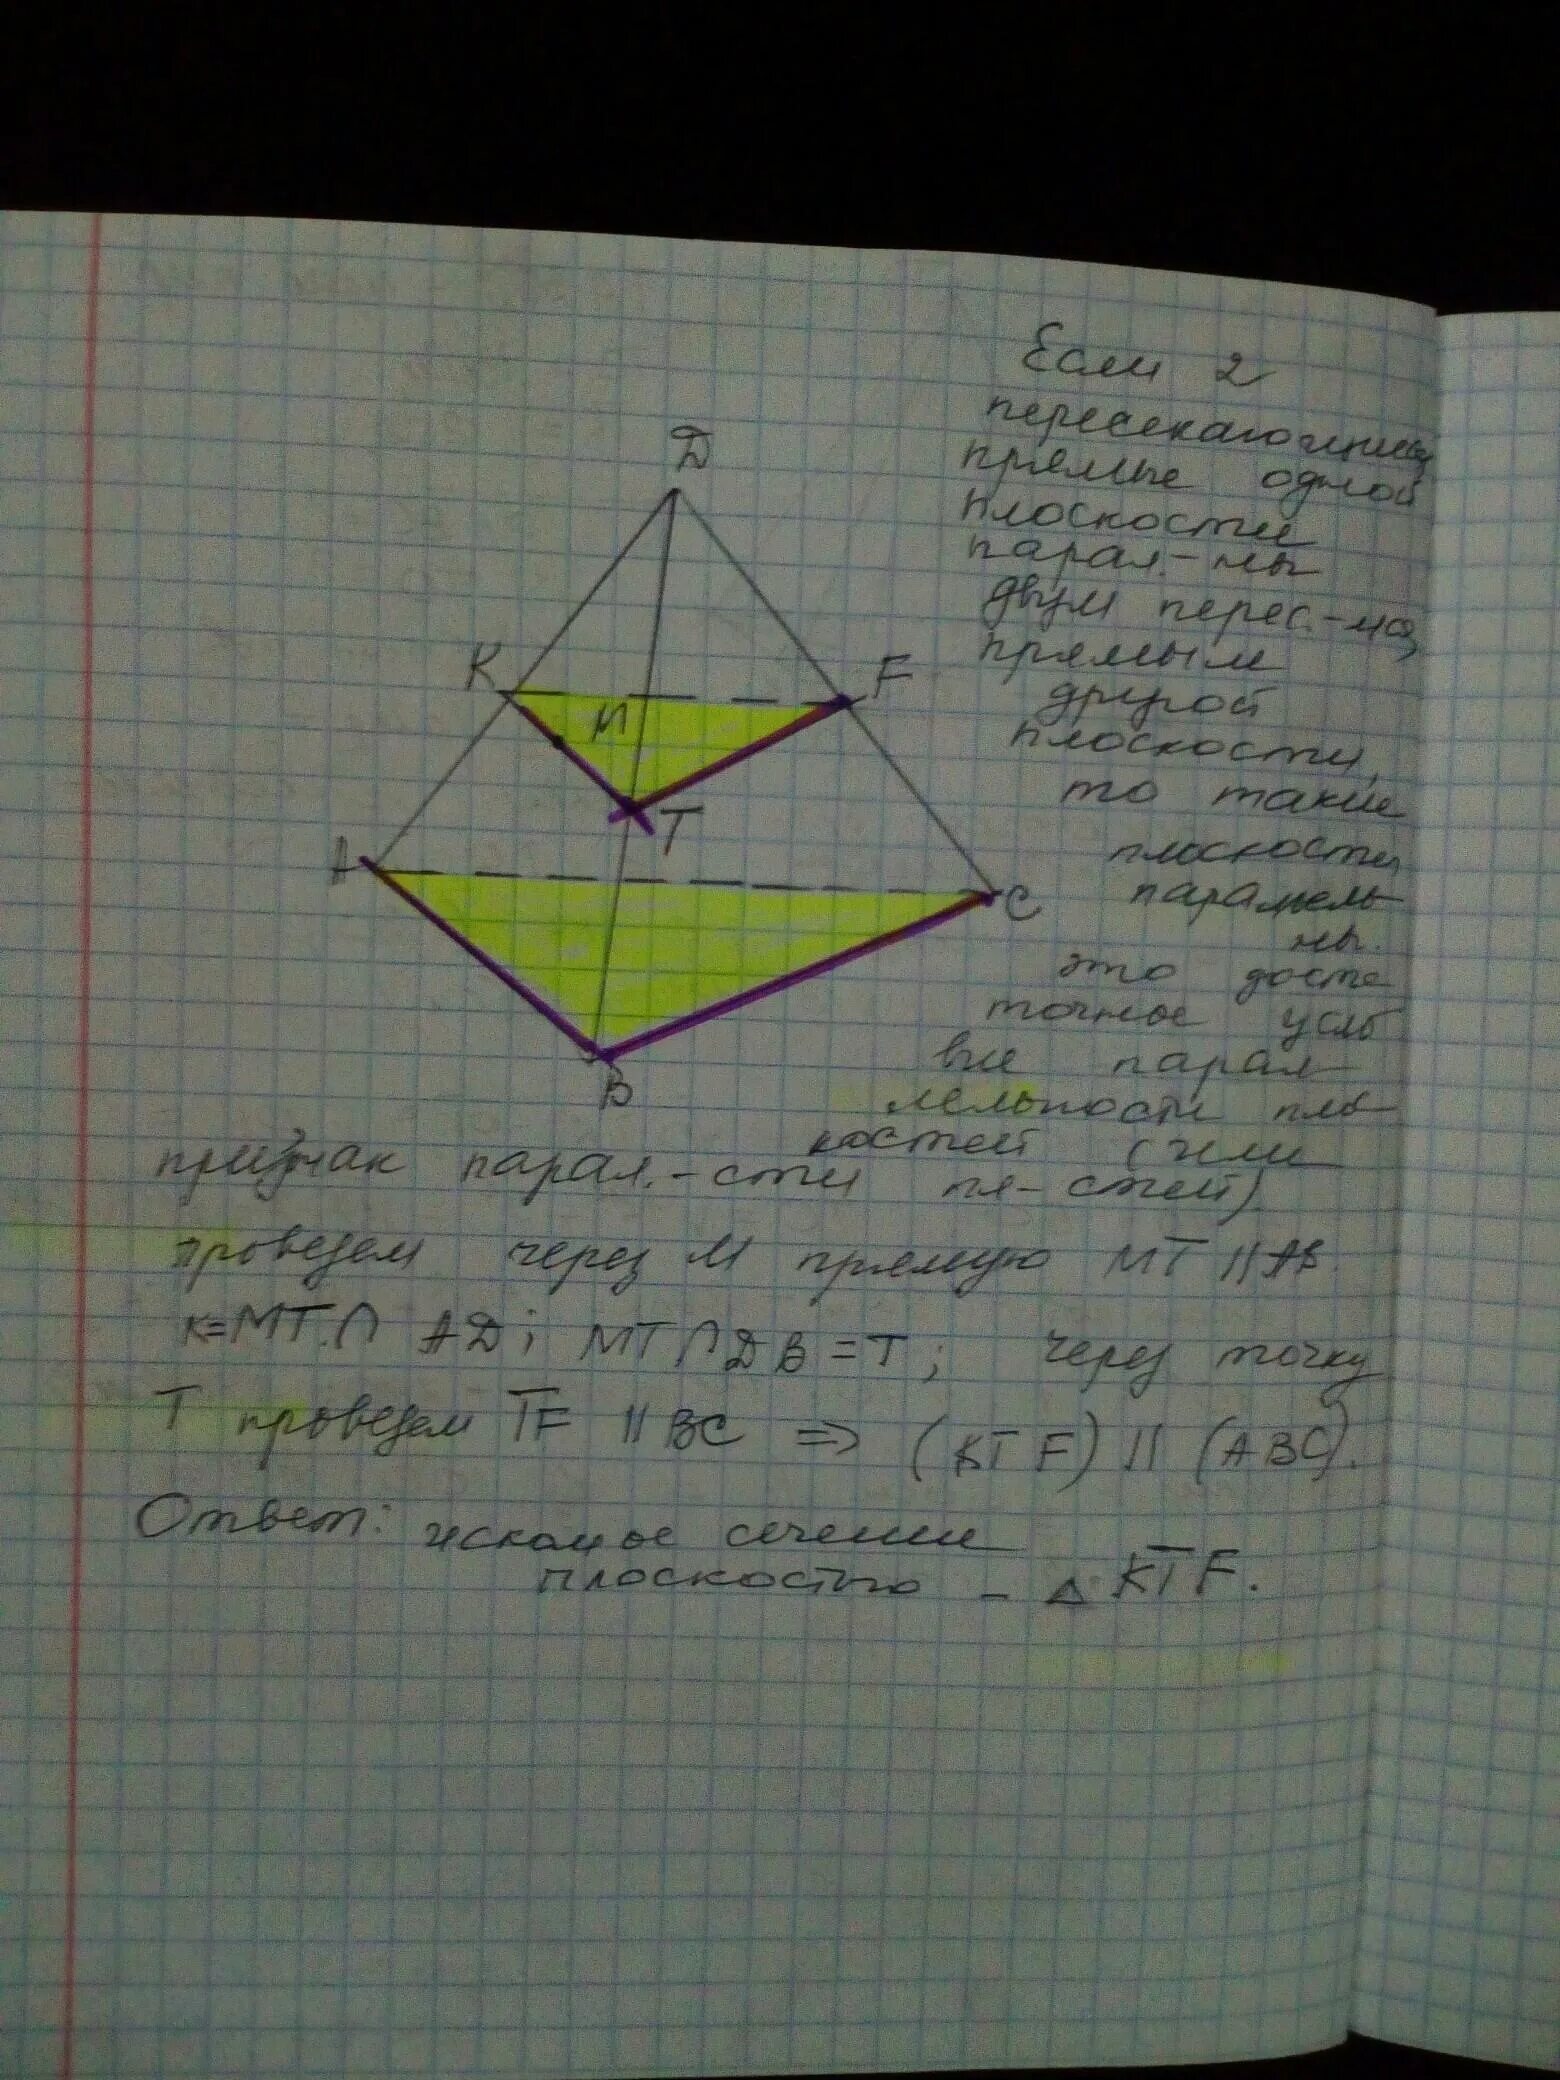 Если 2
пересекающиеся
прямые одной
плоскости
парал.-ны
двум перес.-мся
прямым
другой
плоскости,
то такие
плоскости
параллель
ны.
это доста
точное усло
вие парал
лельности плос
костей (или
признак парал.-сти пл-стей)
D
K
F
M
T
A
C
B
проведем через M прямую MT || AB.
K=MT ∩ AD; MT ∩ DB = T; через точку
T проведем TF || BC => (KTF) || (ABC).
Ответ: искомое сечение
плоскостью - △ KTF.